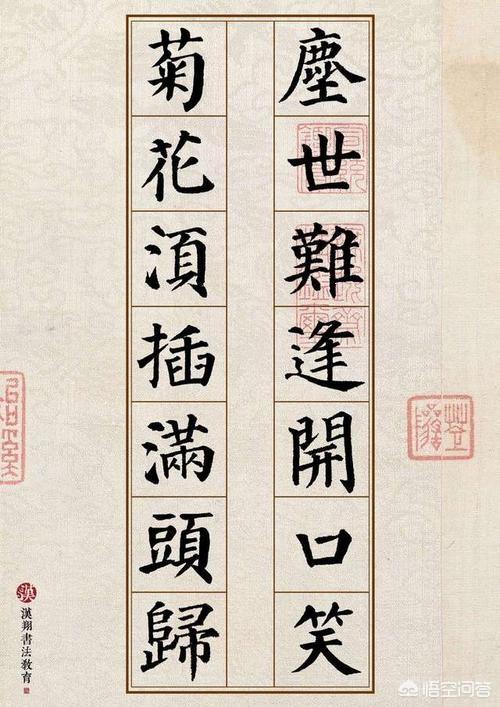 塵世難逢開口笑
菊花湏插滿頭歸
漢翔書法教育
悟空问答